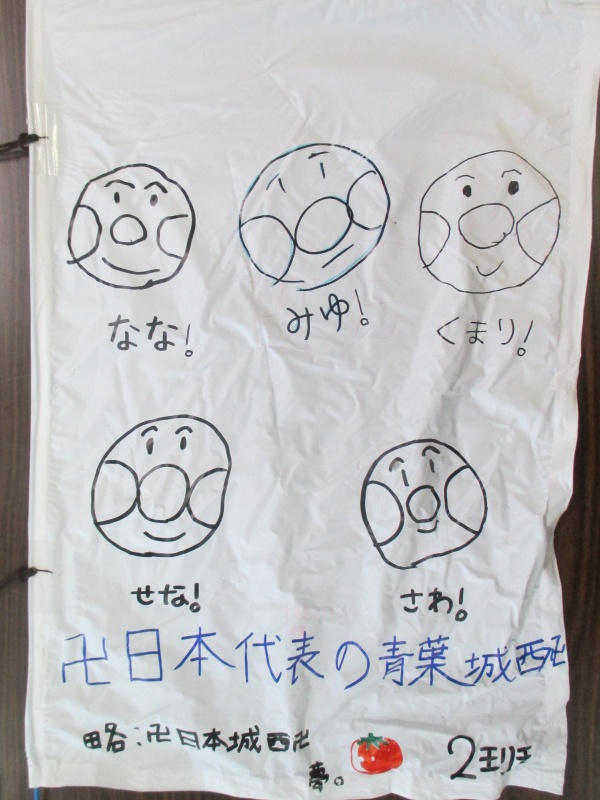 なな! みゆ! くまり!
せな! さわ!
卍日本代表の青葉城西卍
略:卍日本城西卍
夢。 2